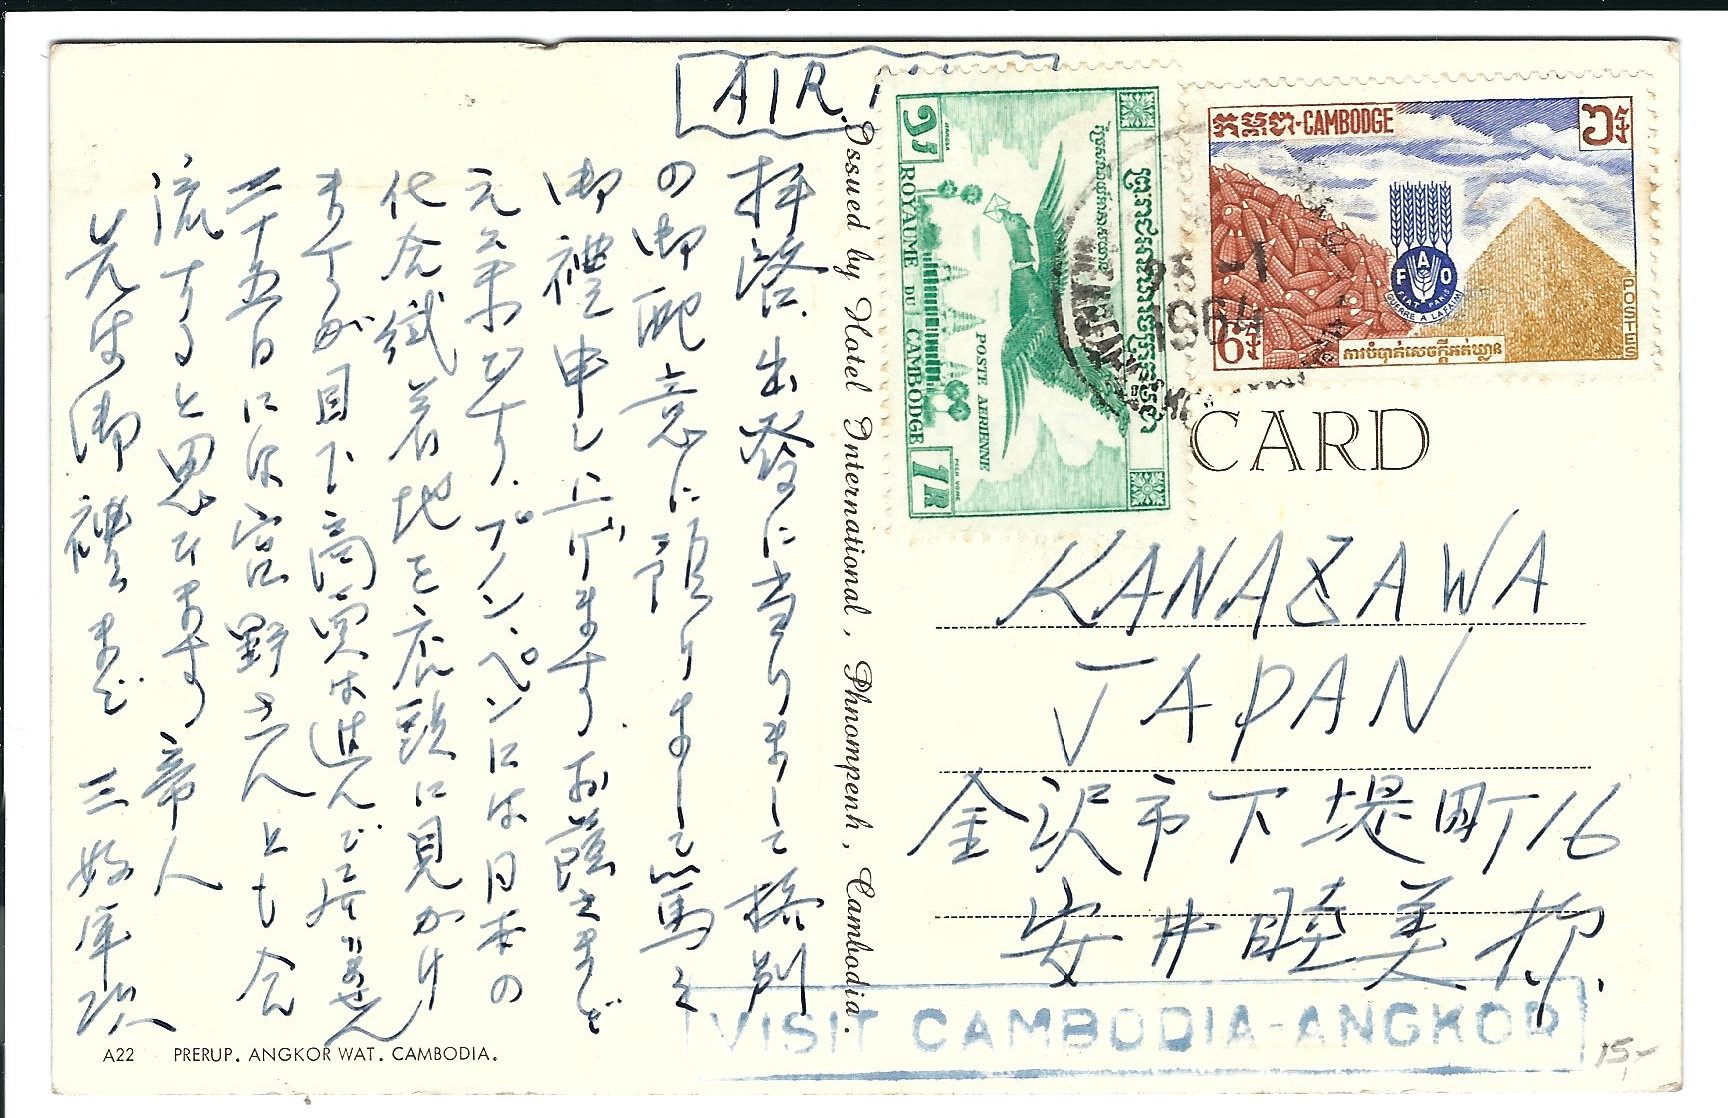 AIR
Issued by Hotel International, Phnompenh, Cambodia.
拝啓 出發に当りまして格別
の御配意に預りまして篤く
御禮申し上げます。お蔭さまで
元気です。プノンペンには日本の
化合繊着地を店頭に見かけ
ますが目下商賣は進んで居りません
二十五日に宮野さんとも合
流すると思ひます 帝人
先は御禮まで 三好
A22 PRERUP. ANGKOR WAT. CAMBODIA.
ROYAUME DU CAMBODGE
POSTE AERIENNE
1R
កម្ពុជា-CAMBODGE
FAO
FIAT PANIS
GUERRE A LA FAIM
6៛
POSTES
ការបំបាត់សេចក្ដីអត់ឃ្លាន
23 -1
1964
CARD
KANAZAWA
JAPAN
金沢市下堤町16
安井睦美 様
VISIT CAMBODIA-ANGKOR
15,-